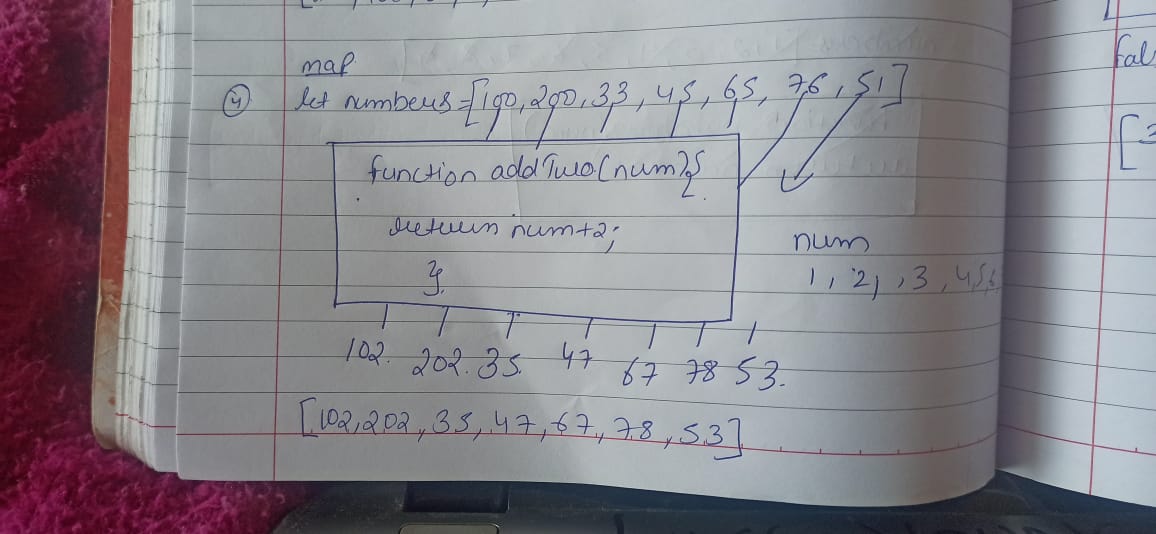 map
④ let numbers=[100,200,33,45,65,76,51]
function addTwo(num){
return num+2;
}
num
1, 2, 3, 4,5,6
102. 202. 35. 47 67 78 53.
[102,202,35,47,67,78,53]
Fal
[3